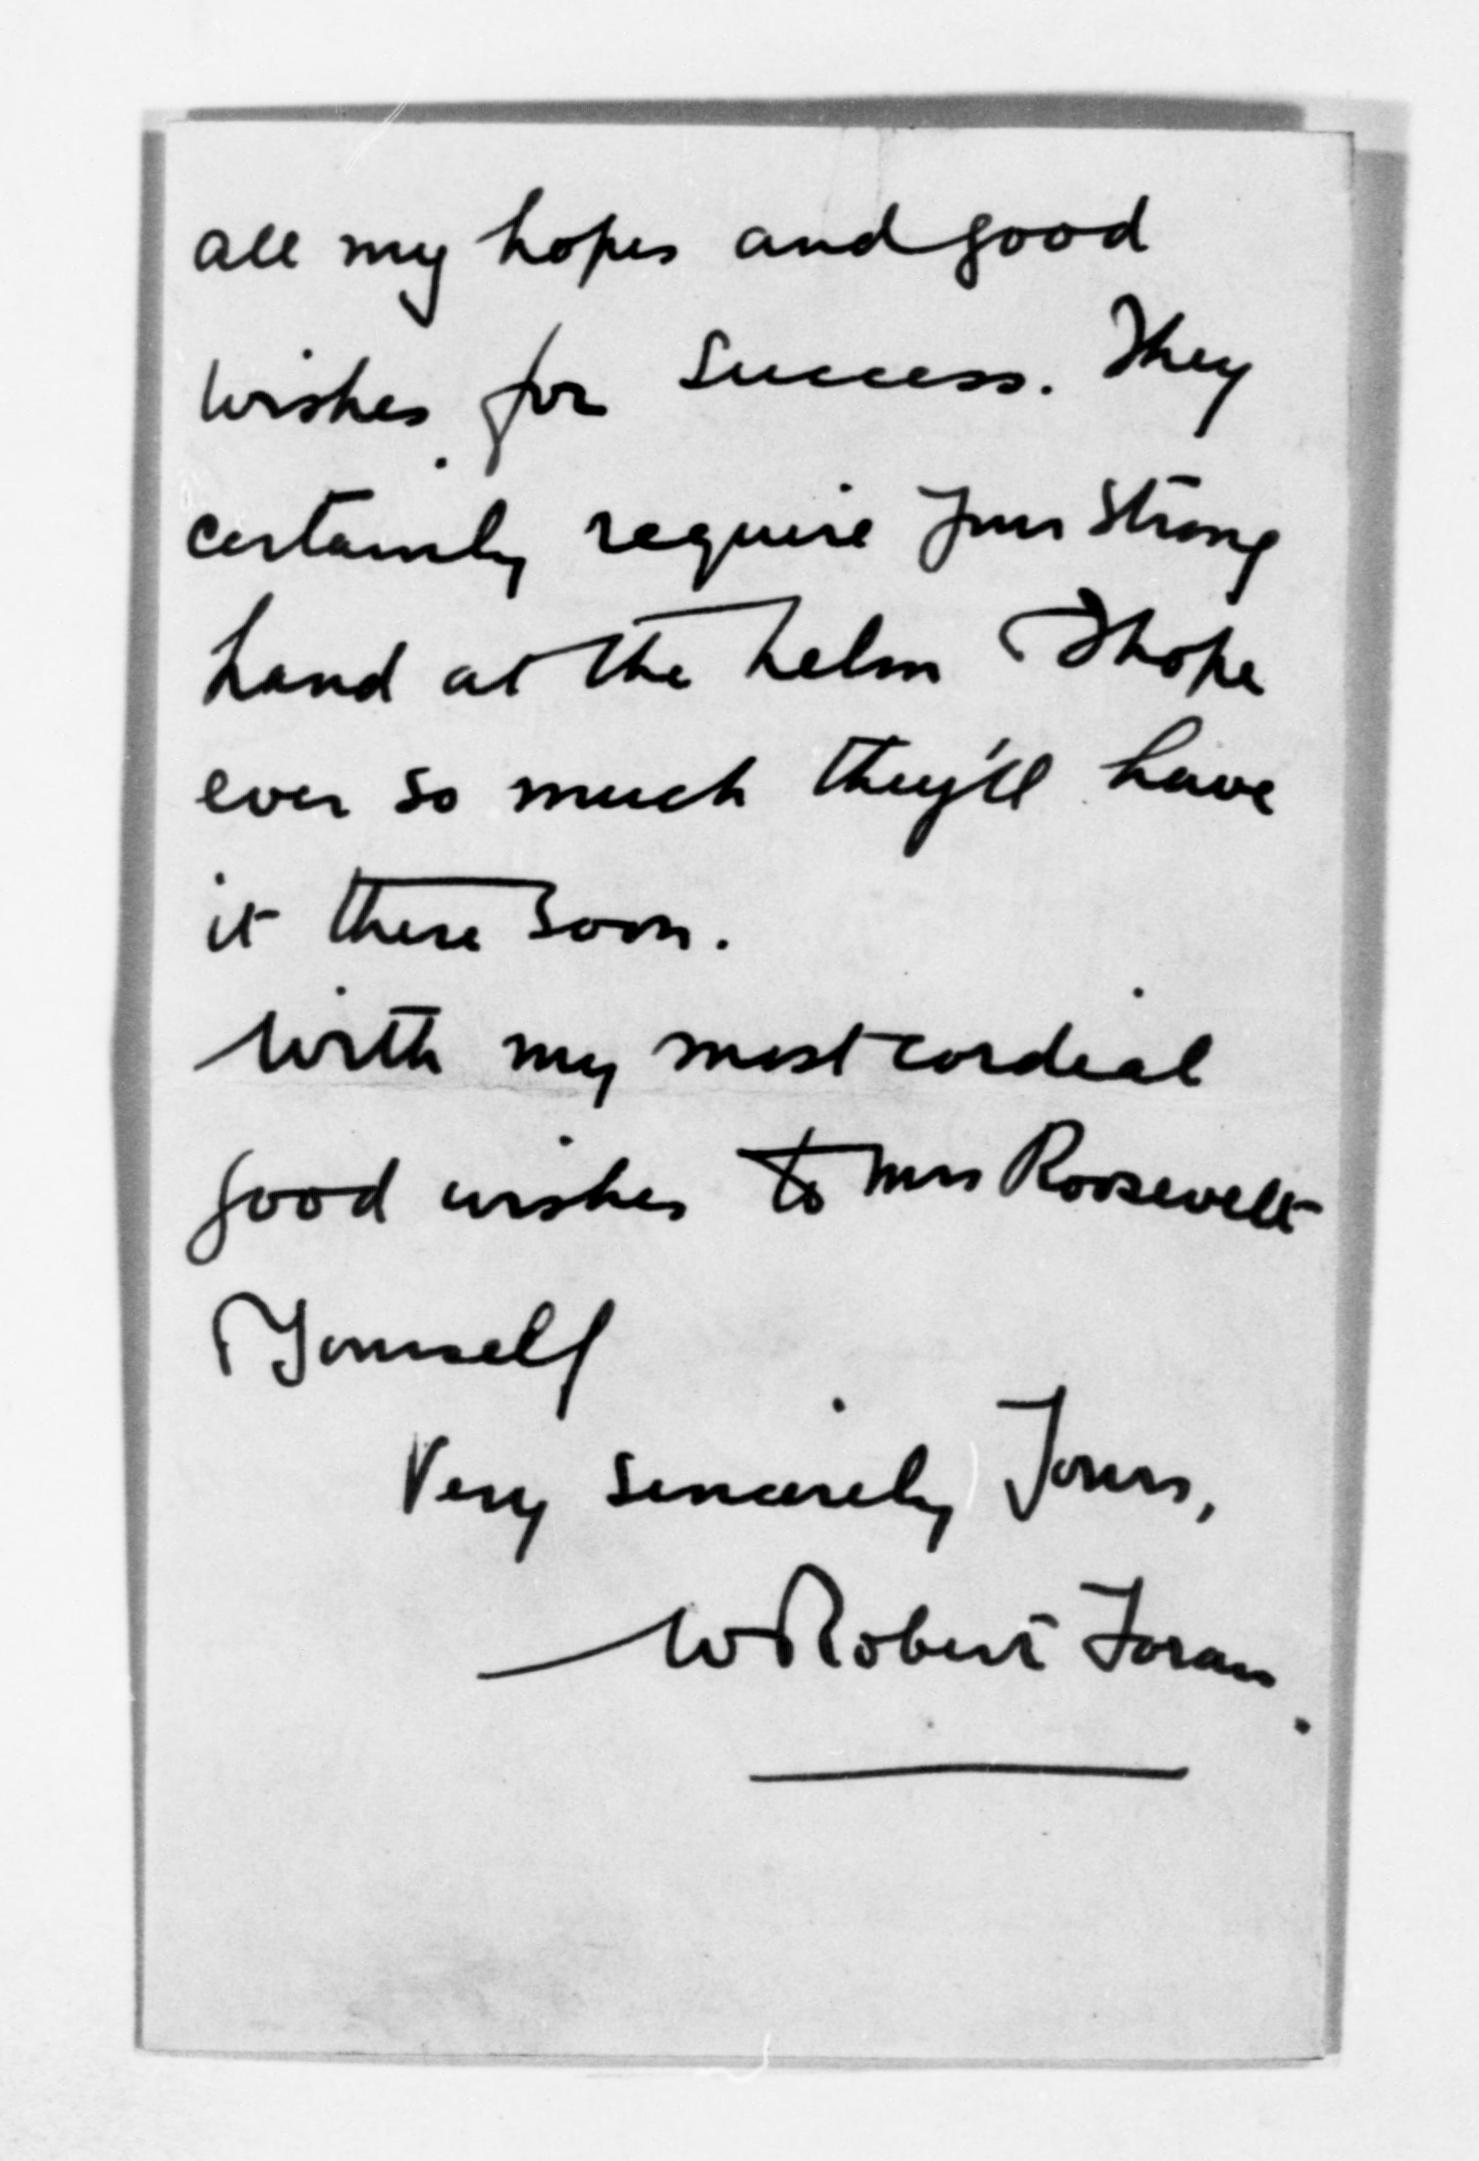 all my hopes and good
wishes for success. They
certainly require your strong
hand at the helm & I hope
ever so much they'll have
it there soon.
With my most cordial
good wishes to Mrs Roosevelt
& yourself
Very sincerely yours,
W Robert Foran.